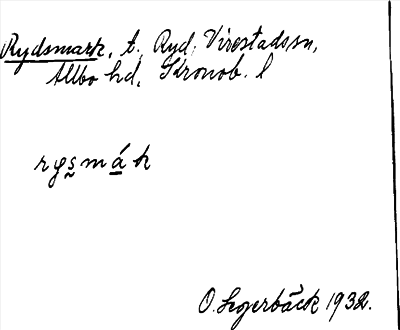 Rydsmark, t. Ryd, Virestadssn,
Allbo hd, Kronob. l
rys̰má̠k
O. Segerbäck 1932.